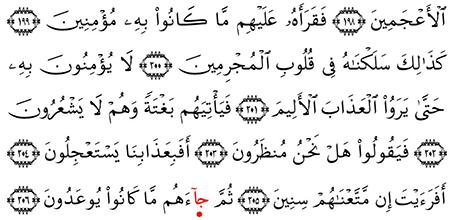 ٱلْأَعْجَمِينَ ﴿١٩٨﴾ فَقَرَأَهُۥ عَلَيْهِم مَّا كَانُوا۟ بِهِۦ مُؤْمِنِينَ ﴿١٩٩﴾
كَذَٰلِكَ سَلَكْنَـٰهُ فِى قُلُوبِ ٱلْمُجْرِمِينَ ﴿٢٠٠﴾ لَا يُؤْمِنُونَ بِهِۦ
حَتَّىٰ يَرَوُا۟ ٱلْعَذَابَ ٱلْأَلِيمَ ﴿٢٠١﴾ فَيَأْتِيَهُم بَغْتَةً وَهُمْ لَا يَشْعُرُونَ
﴿٢٠٢﴾ فَيَقُولُوا۟ هَلْ نَحْنُ مُنظَرُونَ ﴿٢٠٣﴾ أَفَبِعَذَابِنَا يَسْتَعْجِلُونَ ﴿٢٠٤﴾
أَفَرَءَيْتَ إِن مَّتَّعْنَـٰهُمْ سِنِينَ ﴿٢٠٥﴾ ثُمَّ جَآءَهُم مَّا كَانُوا۟ يُوعَدُونَ ﴿٢٠٦﴾